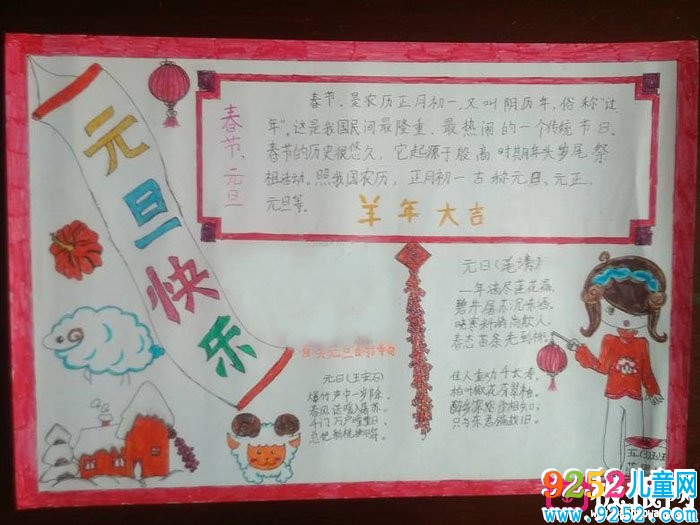 元旦快乐
春节、元旦
春节，是农历正月初一，又叫阴历年，俗称"过
年"。这是我国民间最隆重、最热闹的一个传统节日。
春节的历史很悠久，它起源于殷高时期年头岁尾祭
祖活动。照我国农历，正月初一古称元日、元正、
元旦等。
羊年大吉
元日(毛滂)
一年滴尽莲花漏
碧井屠苏沉冻酒
春态苗条先到柳
佳人重劝千长寿
柏叶椒花芬翠袖
只与东君偏故旧。
元日(王安石)
爆竹声中一岁除
春风送暖入屠苏
千门万户曈曈日
9252儿童网
www.9252.com